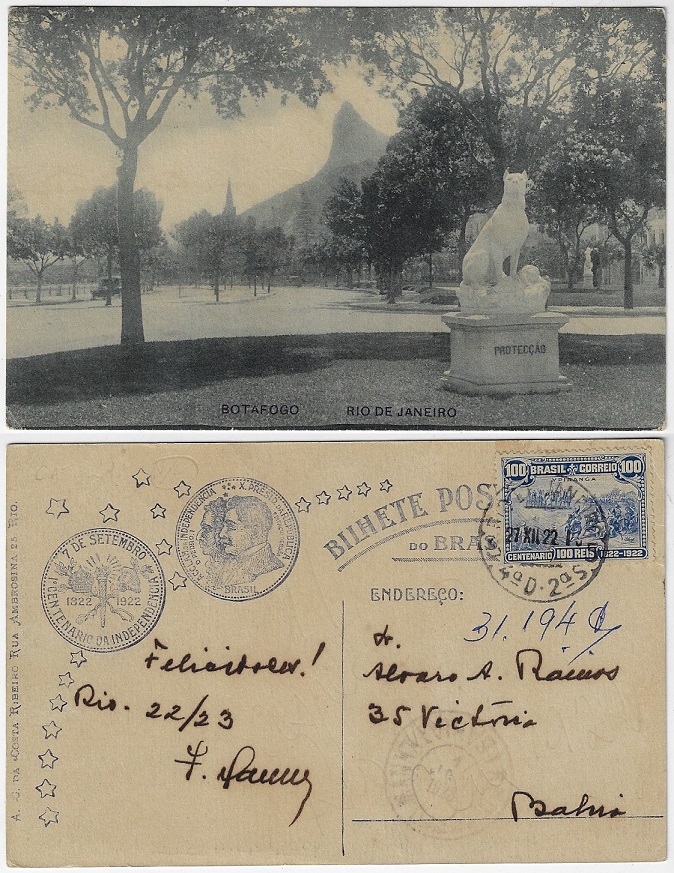 PROTECÇÃO
BOTAFOGO RIO DE JANEIRO
A. G. DA COSTA RIBEIRO RUA AMBROSINA 25 RIO.
7 DE SETEMBRO
1822 1922
1º CENTENARIO DA INDEPENDENCIA
INDEPENDENCIA
X. PRESID. DA REPUBLICA
BRASIL
BILHETE POS
DO BRA
100 BRASIL CORREIO 100
YPIRANGA
CENTENARIO 100 REIS 1822-1922
27 XII 22
4ª D. 2ª S.
ENDEREÇO:
31.194
Felicitações!
Rio. 22/23
Dr.
Alvaro A. Ramos
35 Victória
Bahia